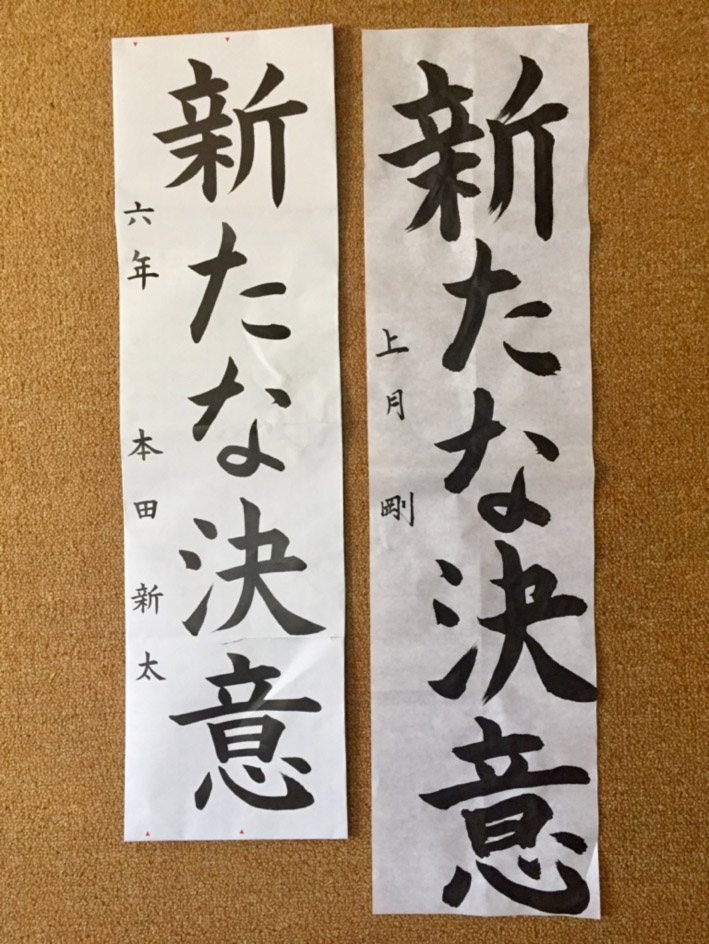 新たな決意
上月 剛
新たな決意
六年 本田 新太